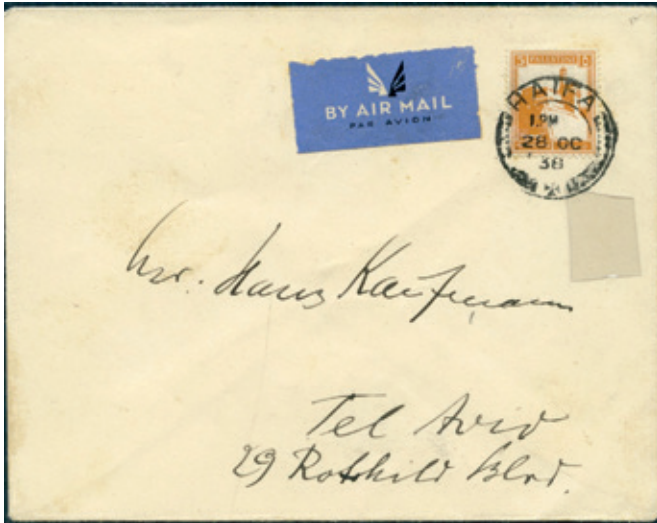 BY AIR MAIL
PAR AVION
5 PALESTINE 5
HAIFA
1 PM
28 OC
38
Mr. Hans Kaufmann
Tel Aviv
29 Rothschild Blvd.